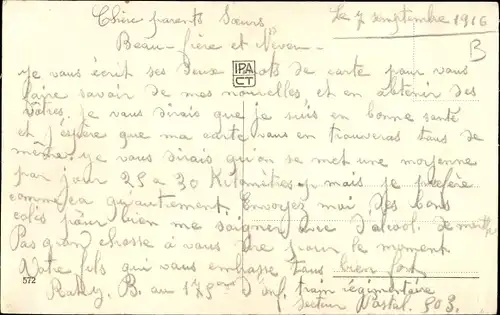 Chère parents Sœurs
Le 7 semptembre 1916
Beau-frère et Neveu
B
Je vous écrit ses deux mots de carte pour vous
IPA
CT
faire savoir de mes nouvelles et en obtenir des
vôtres. Je vous dirais que je suis en bonne santé
et j'éspère que ma carte vous en trouveras tous de
même. Je vous dirais qu'on se met une moyenne
par jour 25 a 30 Kilomètres, mais je préfère
comme ça qu'autrement Envoyez moi des bons
colis pour bien me soigner avec d'alcool de menthe
Pas gran chosse à vous dire pour le moment
Votre fils qui vous embrasse tous bien fort
572
B. au d'inf. train régimentaire
Secteur Postal. 503.